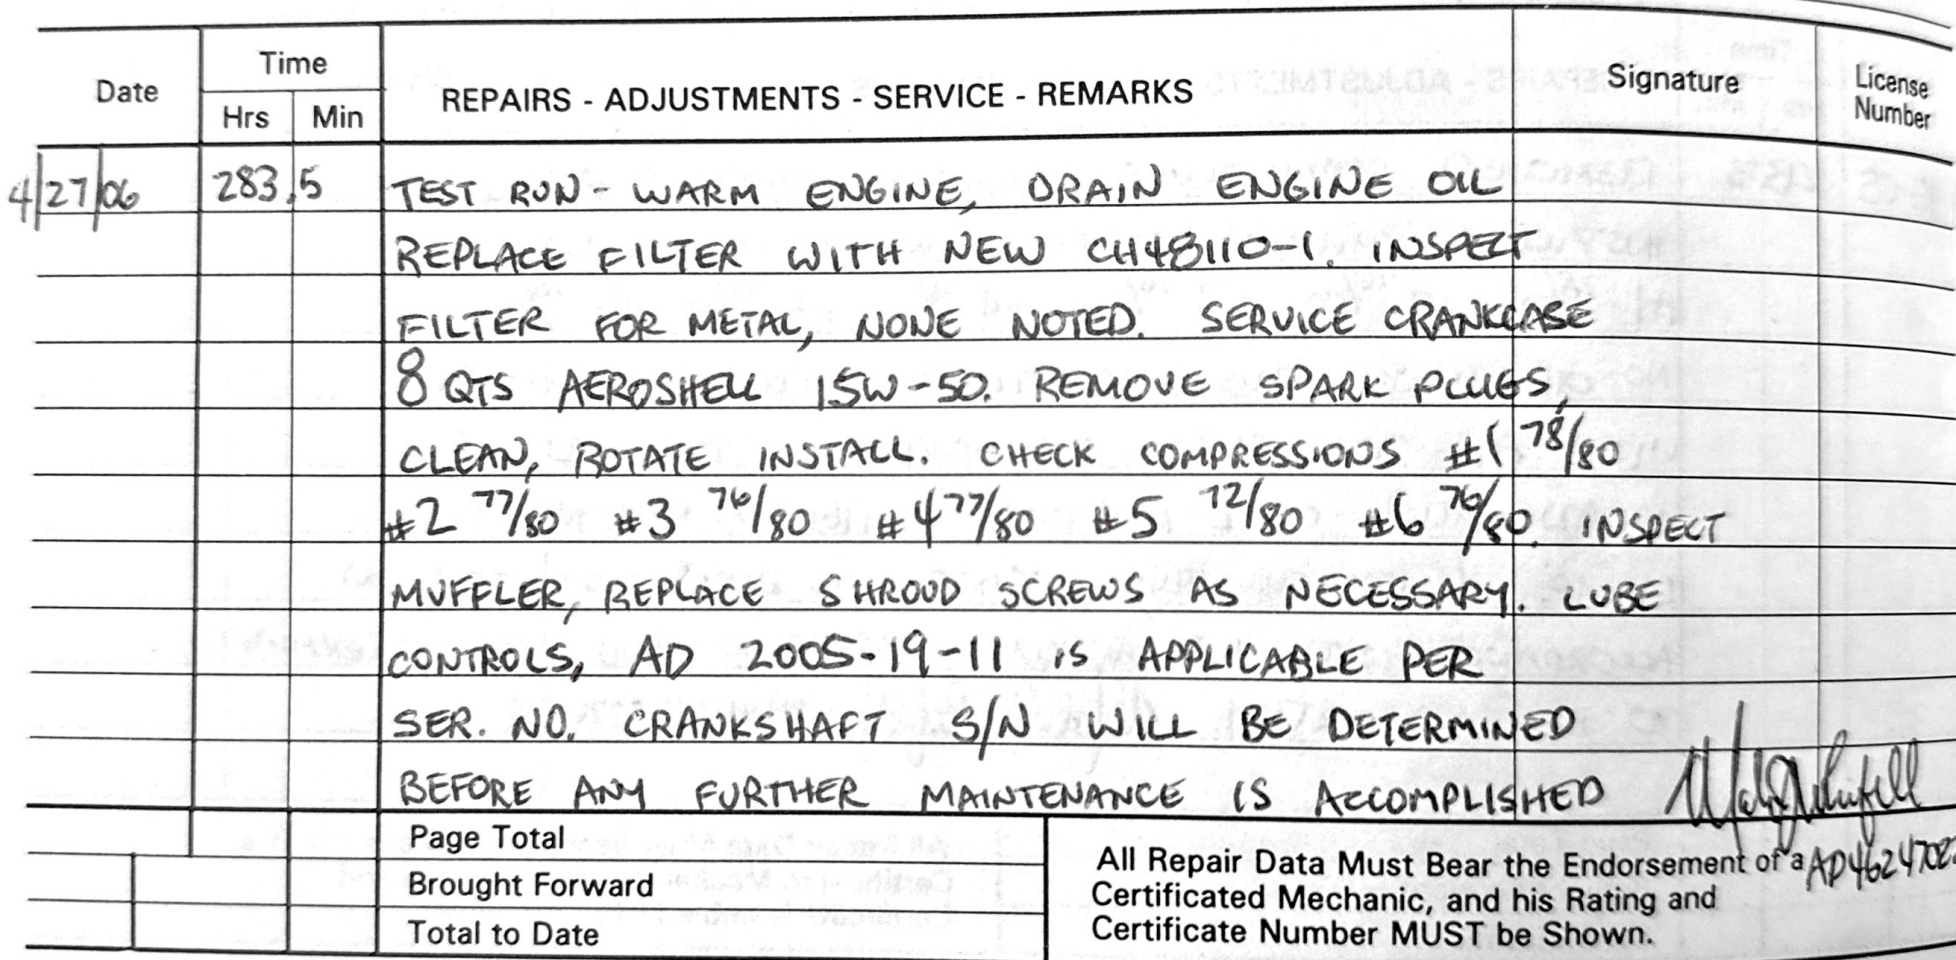 Date
Time
Hrs Min
REPAIRS - ADJUSTMENTS - SERVICE - REMARKS
Signature
License
Number
4/27/06 283.5 TEST RUN - WARM ENGINE, DRAIN ENGINE OIL
REPLACE FILTER WITH NEW CH48110-1. INSPECT
FILTER FOR METAL, NONE NOTED. SERVICE CRANKCASE
8 QTS AEROSHELL 15W-50. REMOVE SPARK PLUGS,
CLEAN, ROTATE INSTALL. CHECK COMPRESSIONS #1 78/80
#2 77/80 #3 76/80 #4 77/80 #5 72/80 #6 76/80. INSPECT
MUFFLER, REPLACE SHROUD SCREWS AS NECESSARY. LUBE
CONTROLS, AD 2005-19-11 IS APPLICABLE PER
SER. NO. CRANKSHAFT S/N WILL BE DETERMINED
BEFORE ANY FURTHER MAINTENANCE IS ACCOMPLISHED
Page Total
Brought Forward
Total to Date
All Repair Data Must Bear the Endorsement of a
Certificated Mechanic, and his Rating and
Certificate Number MUST be Shown.